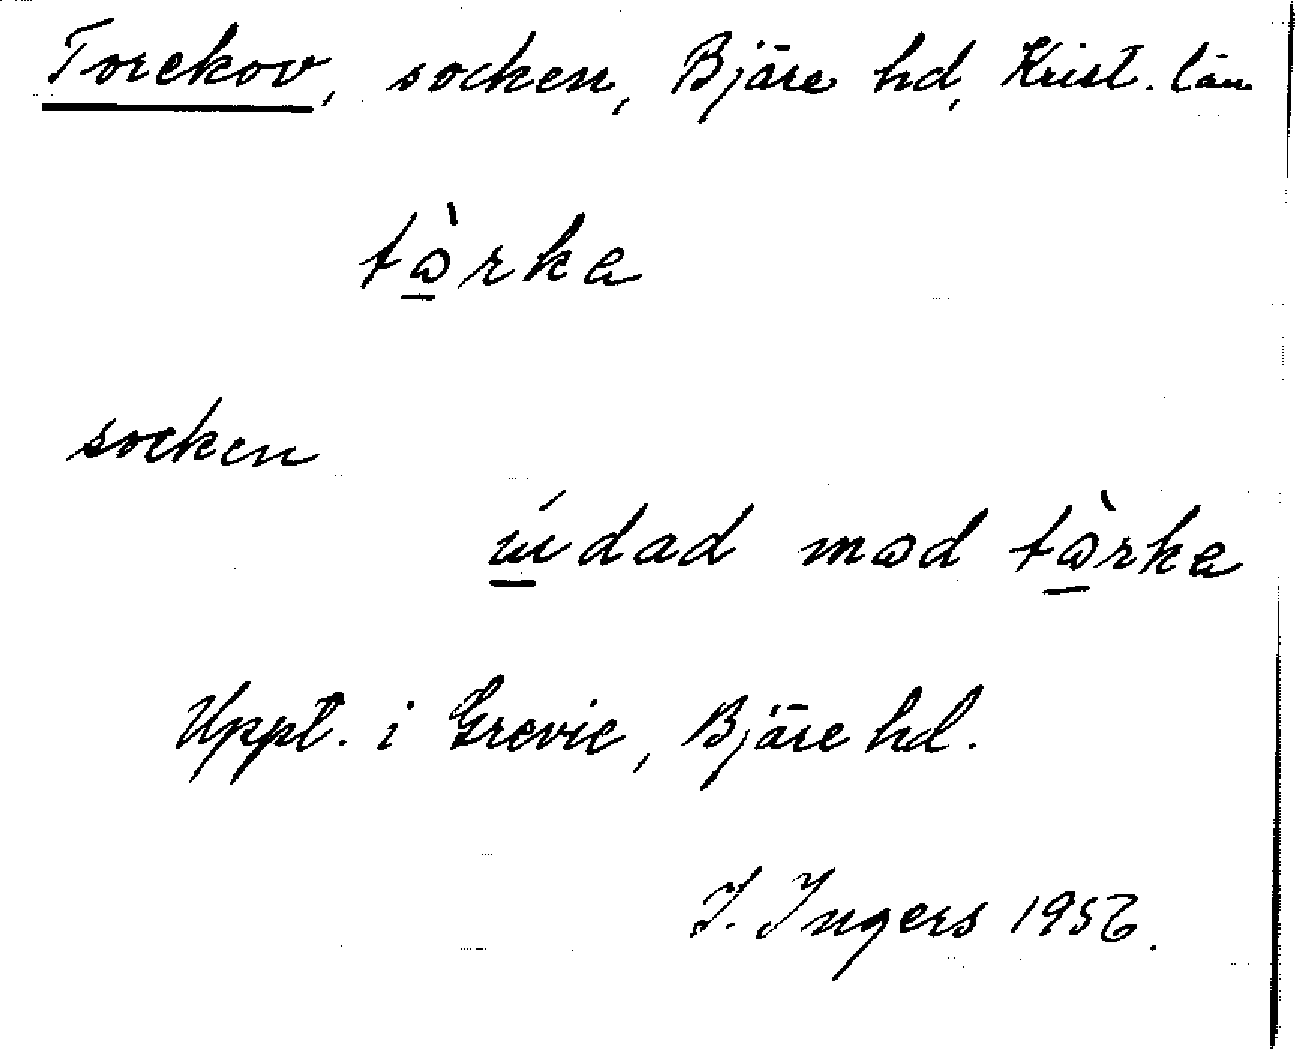 Torekov, socken, Bjäre hd, Krist. län
tɷ̠̀rka
socken
ú̠dad mɷd tɷ̠̀rka
Uppt. i Grevie, Bjäre hd.
I. Ingers 1956.